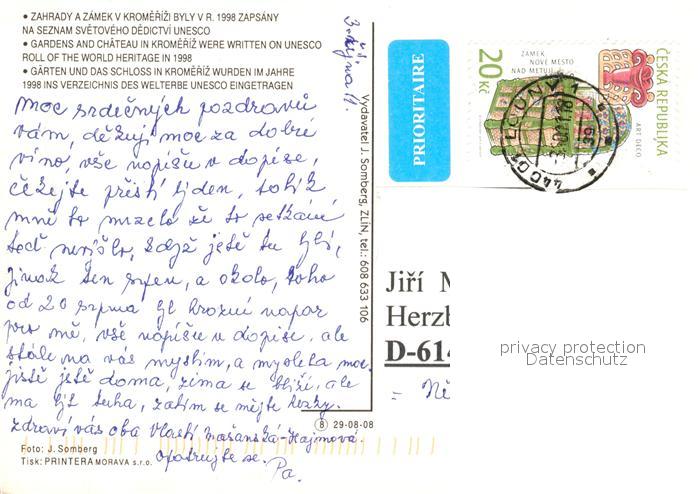 • ZAHRADY A ZÁMEK V KROMĚŘÍŽI BYLY V R. 1998 ZAPSÁNY
NA SEZNAM SVĚTOVÉHO DĚDICTVÍ UNESCO
• GARDENS AND CHÂTEAU IN KROMĚŘÍŽ WERE WRITTEN ON UNESCO
ROLL OF THE WORLD HERITAGE IN 1998
• GÄRTEN UND DAS SCHLOSS IN KROMĚŘÍŽ WURDEN IM JAHRE
1998 INS VERZEICHNIS DES WELTERBE UNESCO EINGETRAGEN
3. října 11.
Moc srdečných pozdravů
vám, děkuji moc za dobré
víno, vše napíšu v dopise,
čekejte příští týden, tolik
mně to mrzelo že to setkání
teď nevyšlo, když jste tu byli,
jinak ten srpen, a okolo, toho
od 20 srpna byl hrozný nápor
pro mě, vše napíšu v dopise, ale
stále na vás myslím, a myslela moc
jistě jste doma, zima se blíží, ale
ma být tuha, zatím se mějte hezky.
zdraví vás oba Vlasti Mašanská-Hajmová.
opatrujte se. Pa.
Vydavatel J. Somberg, ZLÍN, tel.: 608 633 106
8 29-08-08
Foto: J. Somberg
Tisk: PRINTERA MORAVA s.r.o.
PRIORITAIRE
20 Kč
ZÁMEK
NOVÉ MĚSTO
NAD METUJÍ
ČESKÁ REPUBLIKA
ART DECO
440 01 LOUNY 1
Jiří
Herzb
D-614
= Ně
privacy protection
Datenschutz